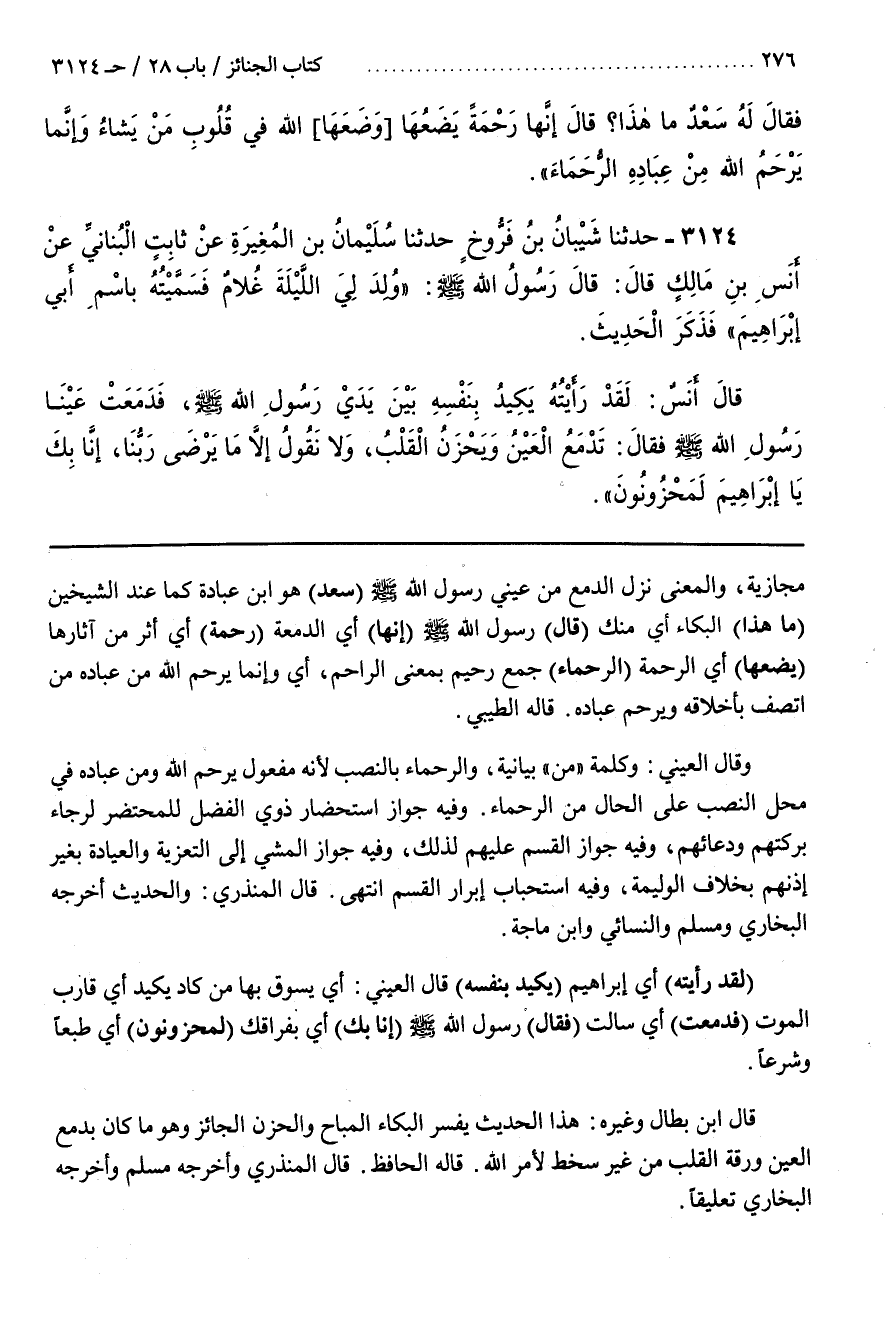 ٢٧٦ ................................................ كتاب الجنائز / باب ٢٨ / حـ ٣١٢٤
فقالَ لَهُ سَعْدٌ ما هٰذَا؟ قالَ إنَّها رَحْمَةً يَضَعُهَا [وَضَعَهَا] الله في قُلُوبِ مَنْ يَشاءُ وَإنَّما
يَرْحَمُ الله مِنْ عِبَادِهِ الرُّحَمَاءَ».
٣١٢٤ - حدثنا شَيْبانُ بنُ فَرُّوخٍ حدثنا سُلَيْمانُ بن المُغِيرَةِ عنْ ثابِتٍ الْبُنانيِّ عنْ
أَنَسِ بنِ مَالِكٍ قالَ: قالَ رَسُولُ الله ﷺ: «وُلِدَ لِيَ اللَّيْلَةَ غُلامٌ فَسَمَّيْتُهُ باسْمِ أبي
إبْرَاهِيمَ» فَذَكَرَ الْحَدِيثَ.
قالَ أَنَسٌ: لَقَدْ رَأَيْتُهُ يَكِيدُ بِنَفْسِهِ بَيْنَ يَدَيْ رَسُولِ الله ﷺ، فَدَمَعَتْ عَيْنَـا
رَسُولِ الله ﷺ فقالَ: تَدْمَعُ الْعَيْنُ وَيَحْزَنُ الْقَلْبُ، وَلا نَقُولُ إلَّا مَا يَرْضَى رَبُّنَا، إنَّا بِكَ
يَا إبْرَاهِيمَ لَمَحْزُونُونَ».
مجازية، والمعنى نزل الدمع من عيني رسول الله ﷺ (سعد) هو ابن عبادة كما عند الشيخين
(ما هذا) البكاء أي منك (قال) رسول الله ﷺ (إنها) أي الدمعة (رحمة) أي أثر من آثارها
(يضعها) أي الرحمة (الرحماء) جمع رحيم بمعنى الراحم، أي وإنما يرحم الله من عباده من
اتصف بأخلاقه ويرحم عباده. قاله الطيبي.
وقال العيني: وكلمة «من» بيانية، والرحماء بالنصب لأنه مفعول يرحم الله ومن عباده في
محل النصب على الحال من الرحماء. وفيه جواز استحضار ذوي الفضل للمحتضر لرجاء
بركتهم ودعائهم، وفيه جواز القسم عليهم لذلك، وفيه جواز المشي إلى التعزية والعيادة بغير
إذنهم بخلاف الوليمة، وفيه استحباب إبرار القسم انتهى. قال المنذري: والحديث أخرجه
البخاري ومسلم والنسائي وابن ماجة.
(لقد رأيته) أي إبراهيم (يكيد بنفسه) قال العيني: أي يسوق بها من كاد يكيد أي قارب
الموت (فدمعت) أي سالت (فقال) رسول الله ﷺ (إنا بك) أي بفراقك (لمحزونون) أي طبعاً
وشرعاً.
قال ابن بطال وغيره: هذا الحديث يفسر البكاء المباح والحزن الجائز وهو ما كان بدمع
العين ورقة القلب من غير سخط لأمر الله. قاله الحافظ. قال المنذري وأخرجه مسلم وأخرجه
البخاري تعليقاً.